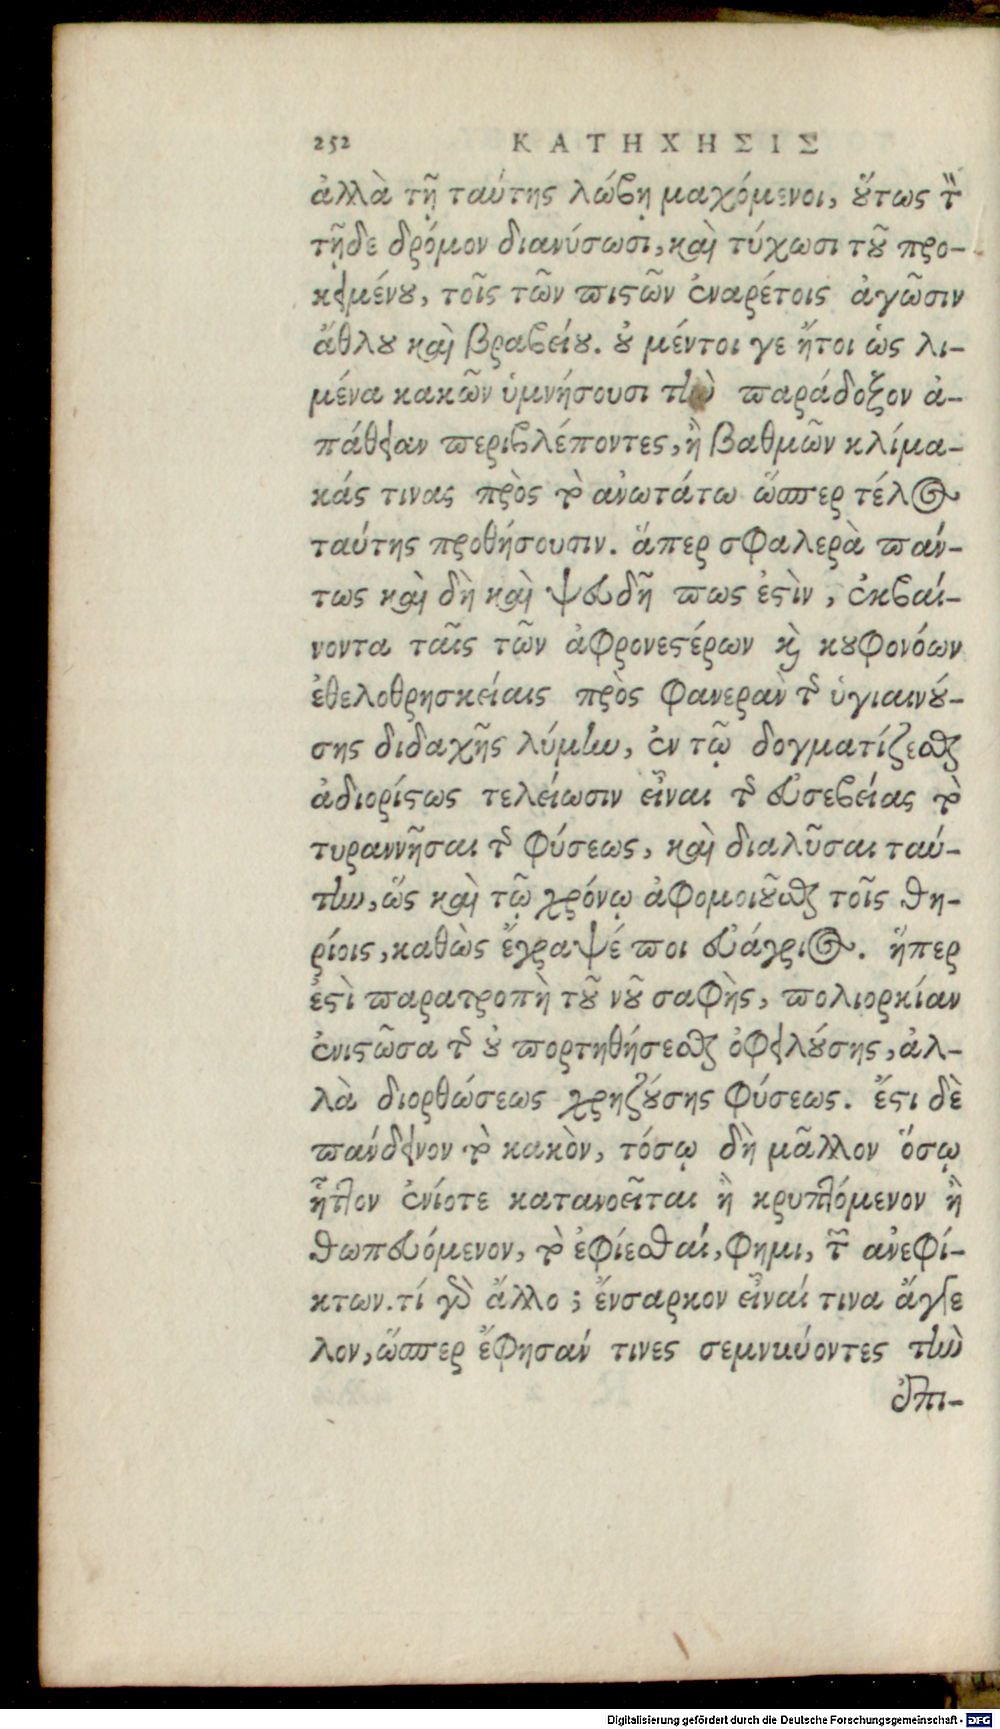 252 ΚΑΤΗΧΗΣΙΣ
ἀλλὰ τῇ ταύτης λώβῃ μαχόμενοι, ὅτως τ̃
τῇδε δρόμον διανύσωσι, καὶ τύχωσι τȣ͂ προ-
κειμένȣ, τοῖς τῶν πιϛῶν ἐναρέτοις ἀγῶσιν
ἄθλȣ καὶ βραβείȣ. ȣ̓ μέντοι γε ἤτοι ὡς λι-
μένα κακῶν ὑμνήσουσι τὴν παράδοξον ἀ-
πάθειαν περιβλέποντες, ἢ βαθμῶν κλίμα-
κάς τινας πρὸς τὸ ἀνωτάτω ὥσπερ τέλος
ταύτης προθήσουσιν. ἅπερ σφαλερὰ πάν-
τως καὶ δὴ καὶ ψευδῆ πως ἐϛὶν, ἐκβαί-
νοντα ταῖς τῶν ἀφρονεϛέρων κ̀ κȣφονόων
ἐθελοθρησκείαις πρὸς φανερὰν τῆς ὑγιαινȣ́-
σης διδαχῆς λύμην, ἐν τῷ δογματίζεσθαι
ἀδιορίϛως τελείωσιν εἶναι τῆς εὐσεβείας τὸ
τυραννῆσαι τῆς φύσεως, καὶ διαλῦσαι ταύ-
την, ὥς καὶ τῷ χρόνῳ ἀφομοιȣ͂σθαι τοῖς θη-
ρίοις, καθὼς ἔγραψέ ποι εὐάγριος. ἥπερ
ἐϛὶ παρατροπὴ τȣ͂ νȣ͂ σαφὴς, πολιορκίαν
ἐνιϛῶσα τῆς ȣ̓ πορτηθήσεσθαι ὀφειλȣ́σης, ἀλ-
λὰ διορθώσεως χρηζȣ́σης φύσεως. ἔϛι δὲ
πάνδεινον τὸ κακὸν, τόσῳ δὴ μᾶλλον ὅσῳ
ἧττον ἐνίοτε κατανοεῖται ἢ κρυπτόμενον ἢ
θωπευόμενον, τὸ ἐφίεσθαί, φημι, τῶν ἀνεφί-
κτων. τί γὰρ ἄλλο; ἔνσαρκον εἶναί τινα ἄγγε
λον, ὥσπερ ἔφησάν τινες σεμνύοντες τὴν
ἐπι-
Digitalisierung gefördert durch die Deutsche Forschungsgemeinschaft - DFG